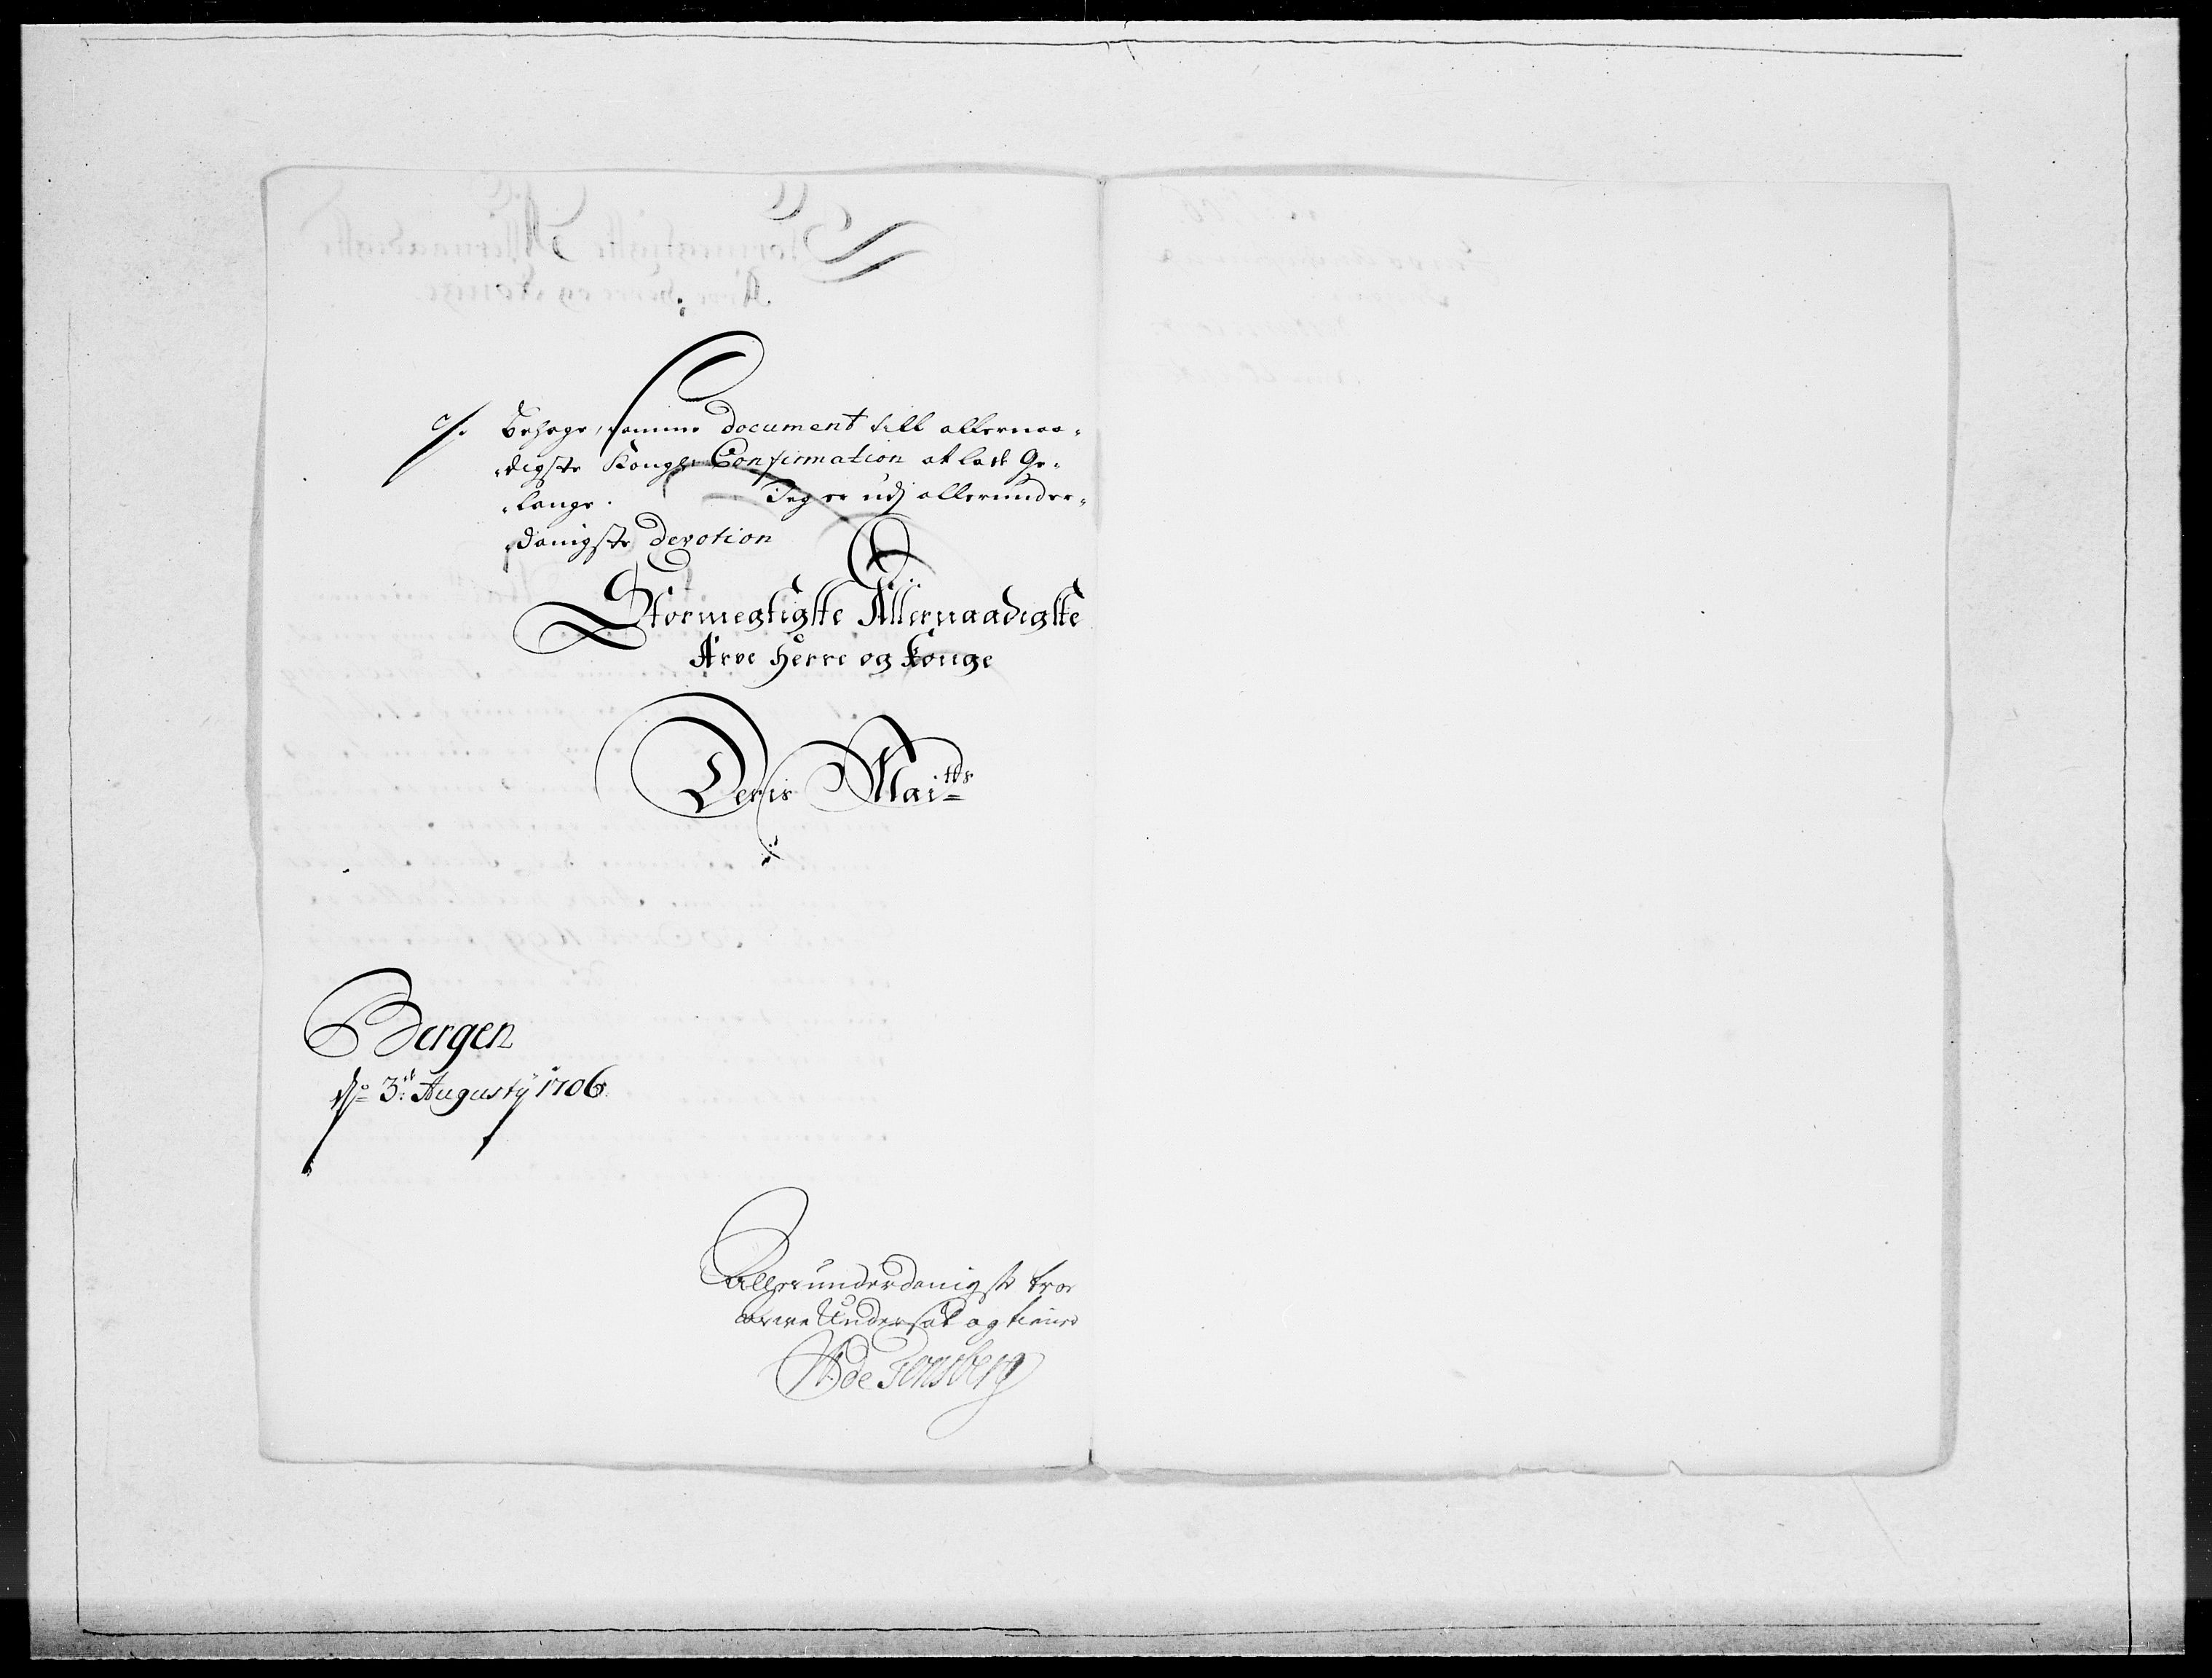 Behage, samme document till allernaa-
digste Kongl. Confirmation at lade Ge-
lange. Jeg er udj allerunder-
danigste devotion
Stormegtigste Allernaadigste
Arve Herre og Konge
Deris Maitts
Bergen
dn 3de Augusty 1706
Allerunderdanigste troe
arve Undersaat og tiener
de Tonsberg